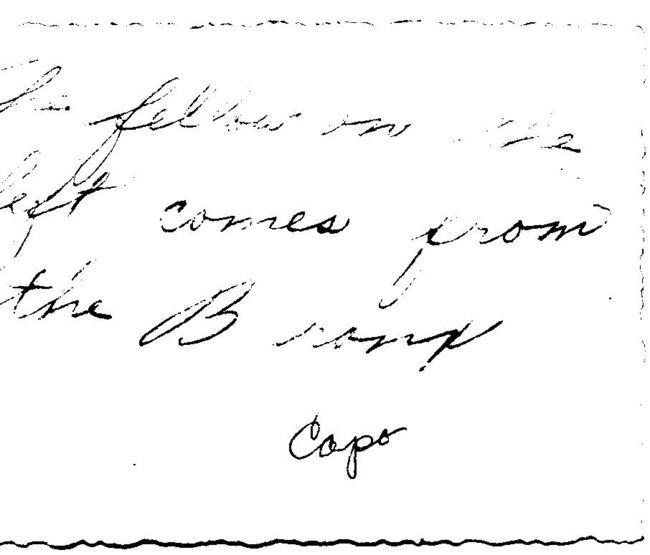 The fellow on the
left comes from
the Bronx
Capo